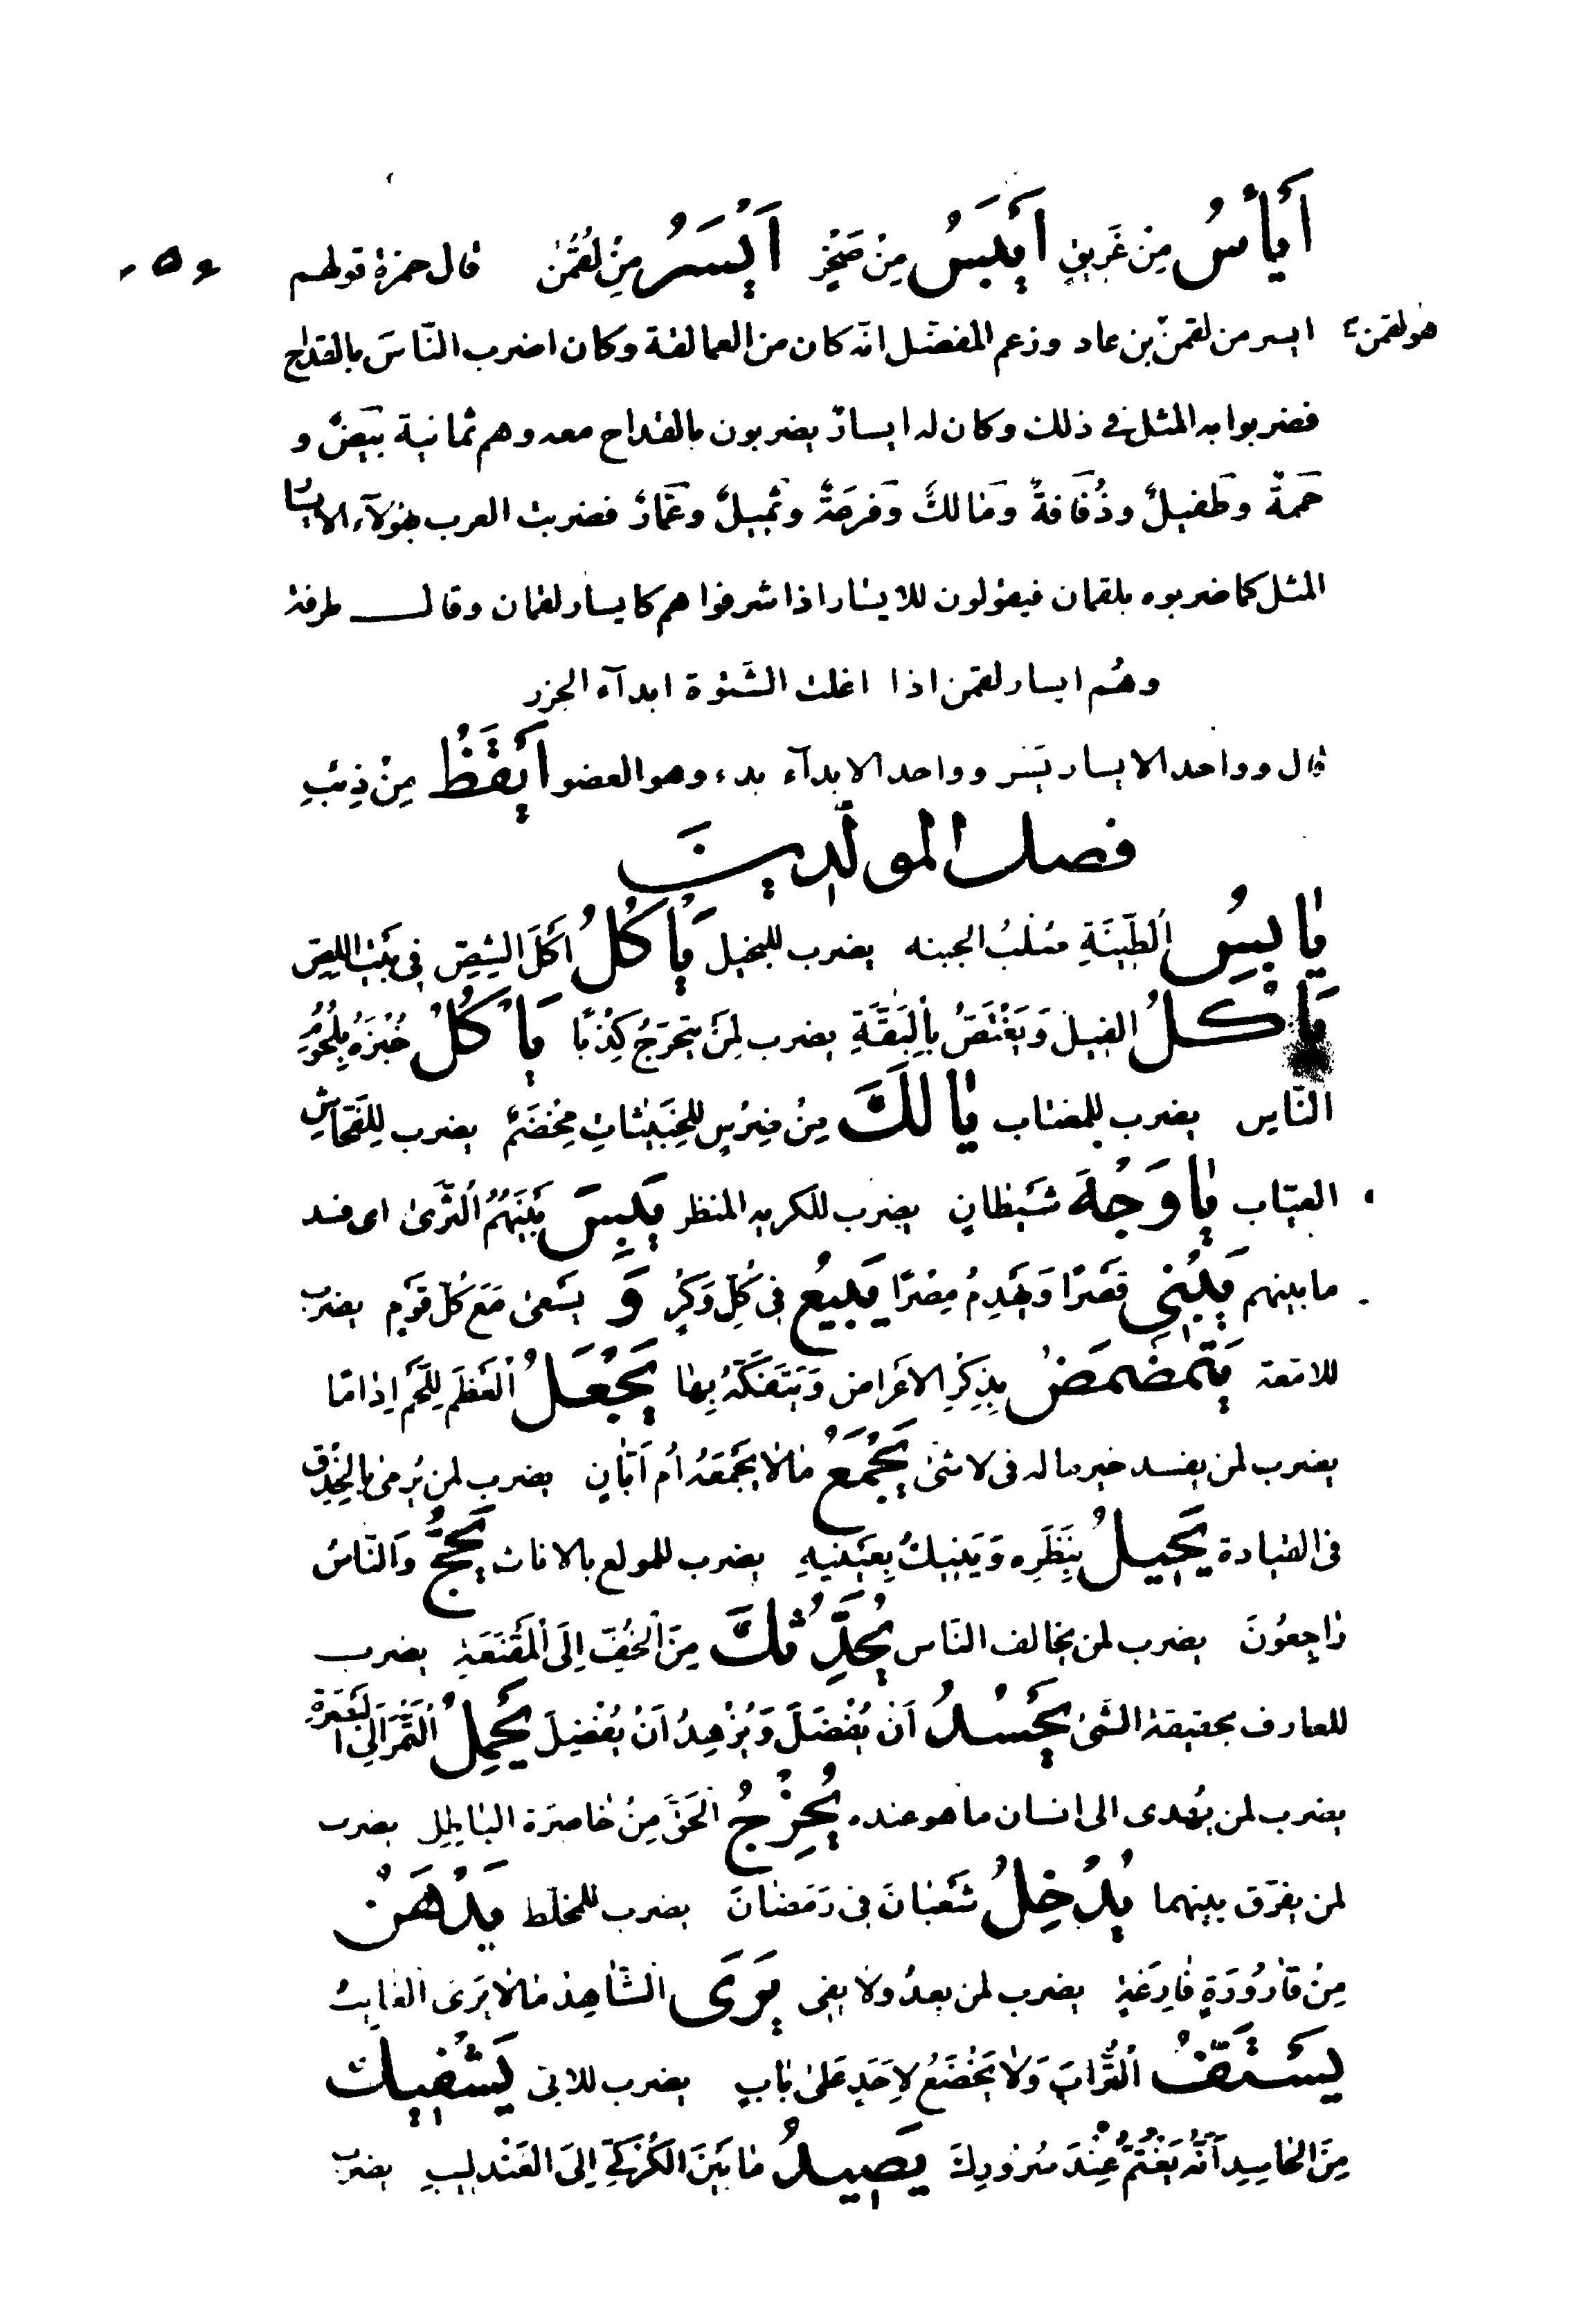 أَيْأَسُ مِنْ غَرِيقٍ أَيْبَسُ مِنْ صَخْرٍ أَيْسَرُ مِنْ لُقْمٰنَ قال حمزة قولهم
هو لقمن ايسر من لقمن بن عاد وزعم المفضّل انّه كان من العمالقة وكان اضرب النّاسَ بالقداح
فضربوا به المثل فى ذلك وكان له ايسارٌ يضربون بالقداح معه وهم ثمانية بيَضٌ و
حَمَةٌ وطفيلٌ وذُفَافةٌ وَمَالكٌ وَفرعَةٌ وثُميلٌ وعَمّارٌ فضربت العرب بهؤلآء الايسار
المثل كما ضربوه بلقمان فيقولون للايسار اذا شرفوا هم كايسار لقمان وقال طرفة
وهُم ايسار لقمن اذا اغلت الشَّتْوة ابدآء الجزر
قال وواحد الايسار يَسَر وواحد الابدآء بدء وهو العضو أَيْقَظُ مِنْ ذِئْبٍ
فصل المولّدِينَ
يَابِسُ اُلطِّينَةِ صُلْبُ الجبنه يضرب للبخيل يَأْكُلُ اَكْلَ الشِّصِّ فِى بَيْتِ اللِّصِّ
يَأْكُلُ الفِيلَ وَيَغْتَصُّ بِاُلْبَقَّةِ يضرب لِمَنْ يتحَرَجُ كِذْبًا يَأْكُلُ خُبْزَهُ بِلُحُومِ
النَّاسِ يضرب للمغتاب يٰالَكَ مِنْ ضِرْسٍ لِلْخَبِيثَاتِ مِخْضَمٌ يضرب لِلفَحّاشِ
العيّاب يٰاوَجْهَ شَيْطَانٍ يضرب للكريه المنظر يَبِسَ بَيْنَهُمُ اُلثَّرَىٰ اى فسد
ما بينهم يَبْنِى قَصْرًا وَيَهْدِمُ مِصْرًا يَبِيعُ فِى كُلِّ وَكْرٍ وَ يَسْعَىٰ مَعَ كُلِّ قَوْمٍ يضرب
للامّعة يَتَمَضْمَضُ بِذِكْرِ الاَعْرَاضِ وَيَتَفَكَّهُ بِهٰا يَجْعَلُ اُلْعَظْمَ لِلَّحْمِ اِدَامًا
يضرب لمن يفسد خير ماله فى لا شئ يَجْمَعُ مٰالاٰ يَجْمَعُهُ اُمُّ اَبَّانٍ يضرب لمن يُرمٰى بالحِذْقِ
فى القيادة يَحِيلُ بِنَظَرِه وَيَنِيكُ بِعَيْنَيْهِ يضرب للمولع بالاناث يَحُجُّ وَالنّاسُ
رٰاجِعُونَ يضرب لمن يخالف النّاس يُحَدِّثُكَ مِنَ اُلْخُفِّ اِلَى اُلْمَقْنَعَةِ يضرب
للعارف بحقيقة الشَّئ يَحْسُدُ اَنْ يُفْضَلَ وَيَزْهَدُ اَنْ يُفْضِلَ يَحْمِلُ اُلتَّمْرَ اِلَى اُلْبَصْرَةِ
يضرب لمن يُهدى الى انسان ما هو عنده يُخْرِجُ الْحَقَّ مِنْ خٰاصِرَة البَاطِلِ يضرب
لمن يفرّق بينهما يُدْخِلُ شَعْبٰانَ فِى رَمَضٰانَ يضرب للمخلّط يَدْهَنُ
مِنْ قٰارُورَةٍ فٰارِغَةٍ يضرب لمن يعدُ ولا يفى يَرَى الشّٰاهِدُ مٰالاٰ يَرَى الْغٰايِبُ
يَسْتَفُّ اُلتُّرَابَ وَلاٰ يَخْضَعُ لِاَحَدٍ عَلىٰ بٰابٍ يضرب للابى يَشْفِيكَ
مِنَ الحٰاسِدِ اَنَّهُ يَغْتَمُّ عِنْدَ سُرُورِكَ يَصِيدُ مٰا بَيْنَ الكُرْكِيِّ اِلَى العَنْدلِيبِ يضرب